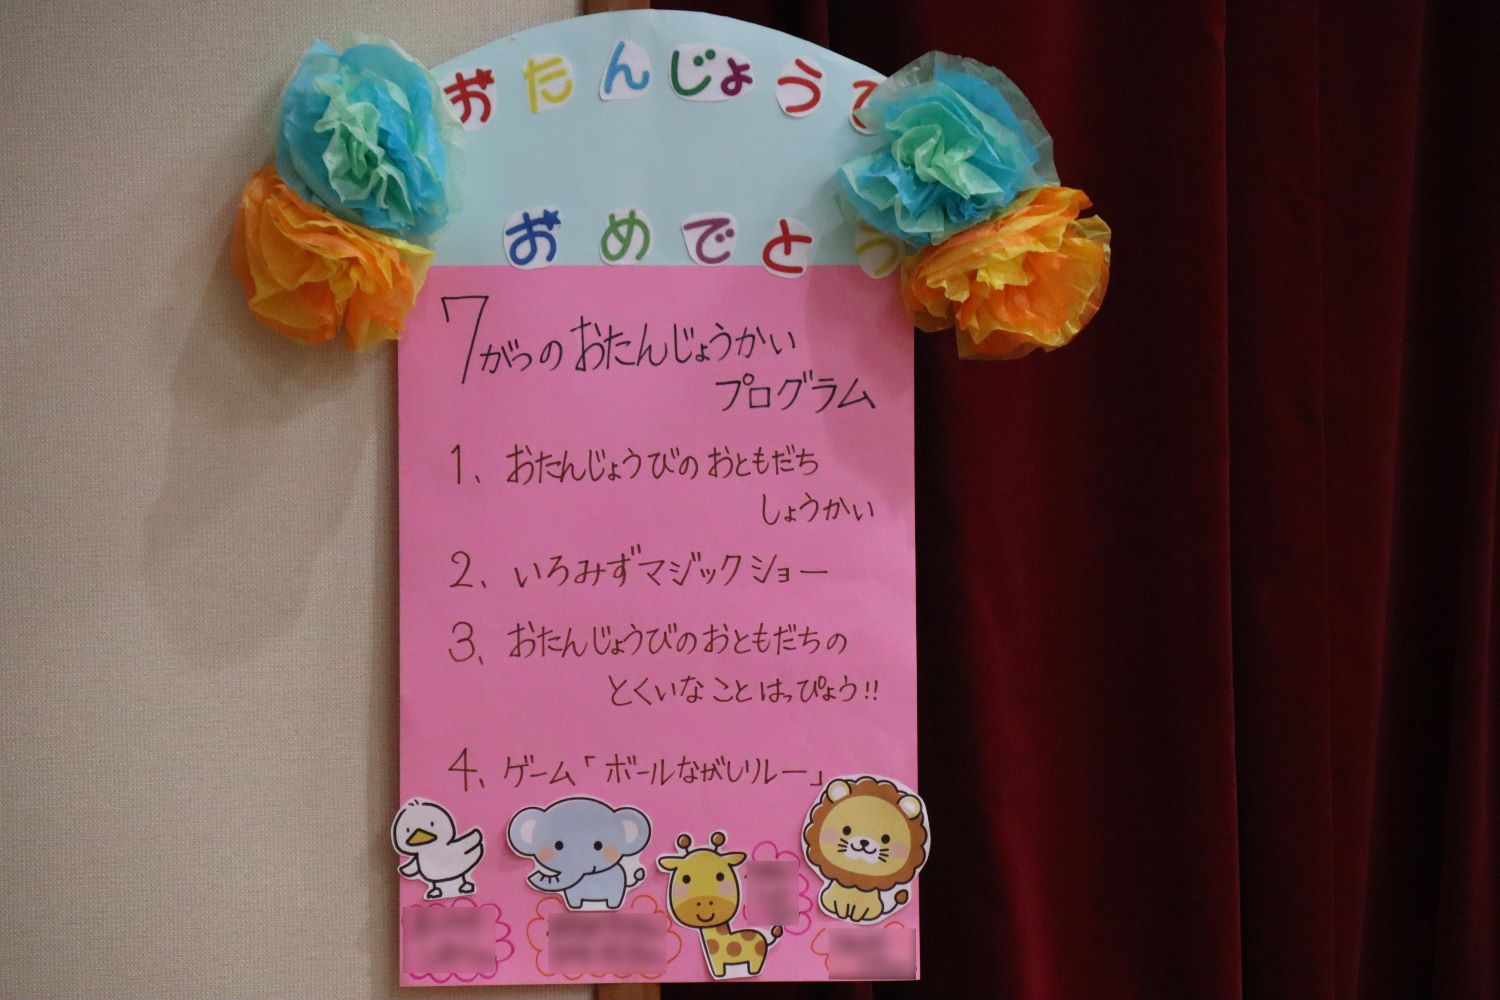 おたんじょうび
おめでとう
7がつのおたんじょうかい
プログラム
1、おたんじょうびのおともだち
しょうかい
2、いろみずマジックショー
3、おたんじょうびのおともだちの
とくいなことはっぴょう!!
4、ゲーム「ボールながしリレー」